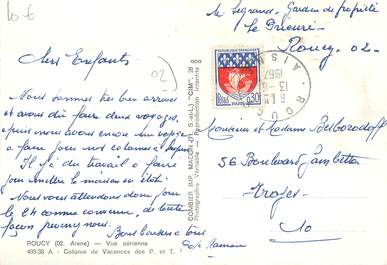 10-6
Chers Enfants
(02)
Nous sommes très bien arrivés
et avons dû faire deux voyages,
puis nous avons encore un voyage
a faire pour nos colonnes a lapins
Il y a du travail a faire
pour mettre la maison en état.
Nous vous attendons donc pour
le 24 comme convenu, de toute
façon
Bons baisers a tous
Maman
ROUCY (02. Aisne) — Vue aérienne
493-38 A - Colonie de Vacances des P. et T.
COMBIER IMP. MACON (01. S-et-L.) "CIM"
Photographie Véritable - Reproduction Interdite
Mr Legrand. Garden de propriété
Le Prieuré
Roucy 02-
REPUBLIQUE FRANÇAISE
POSTES
0,30
PARIS
ROUCY
AISNE
13-6
1967
Monsieur et Madame
56 Boulevard Gambetta
Troyes
10